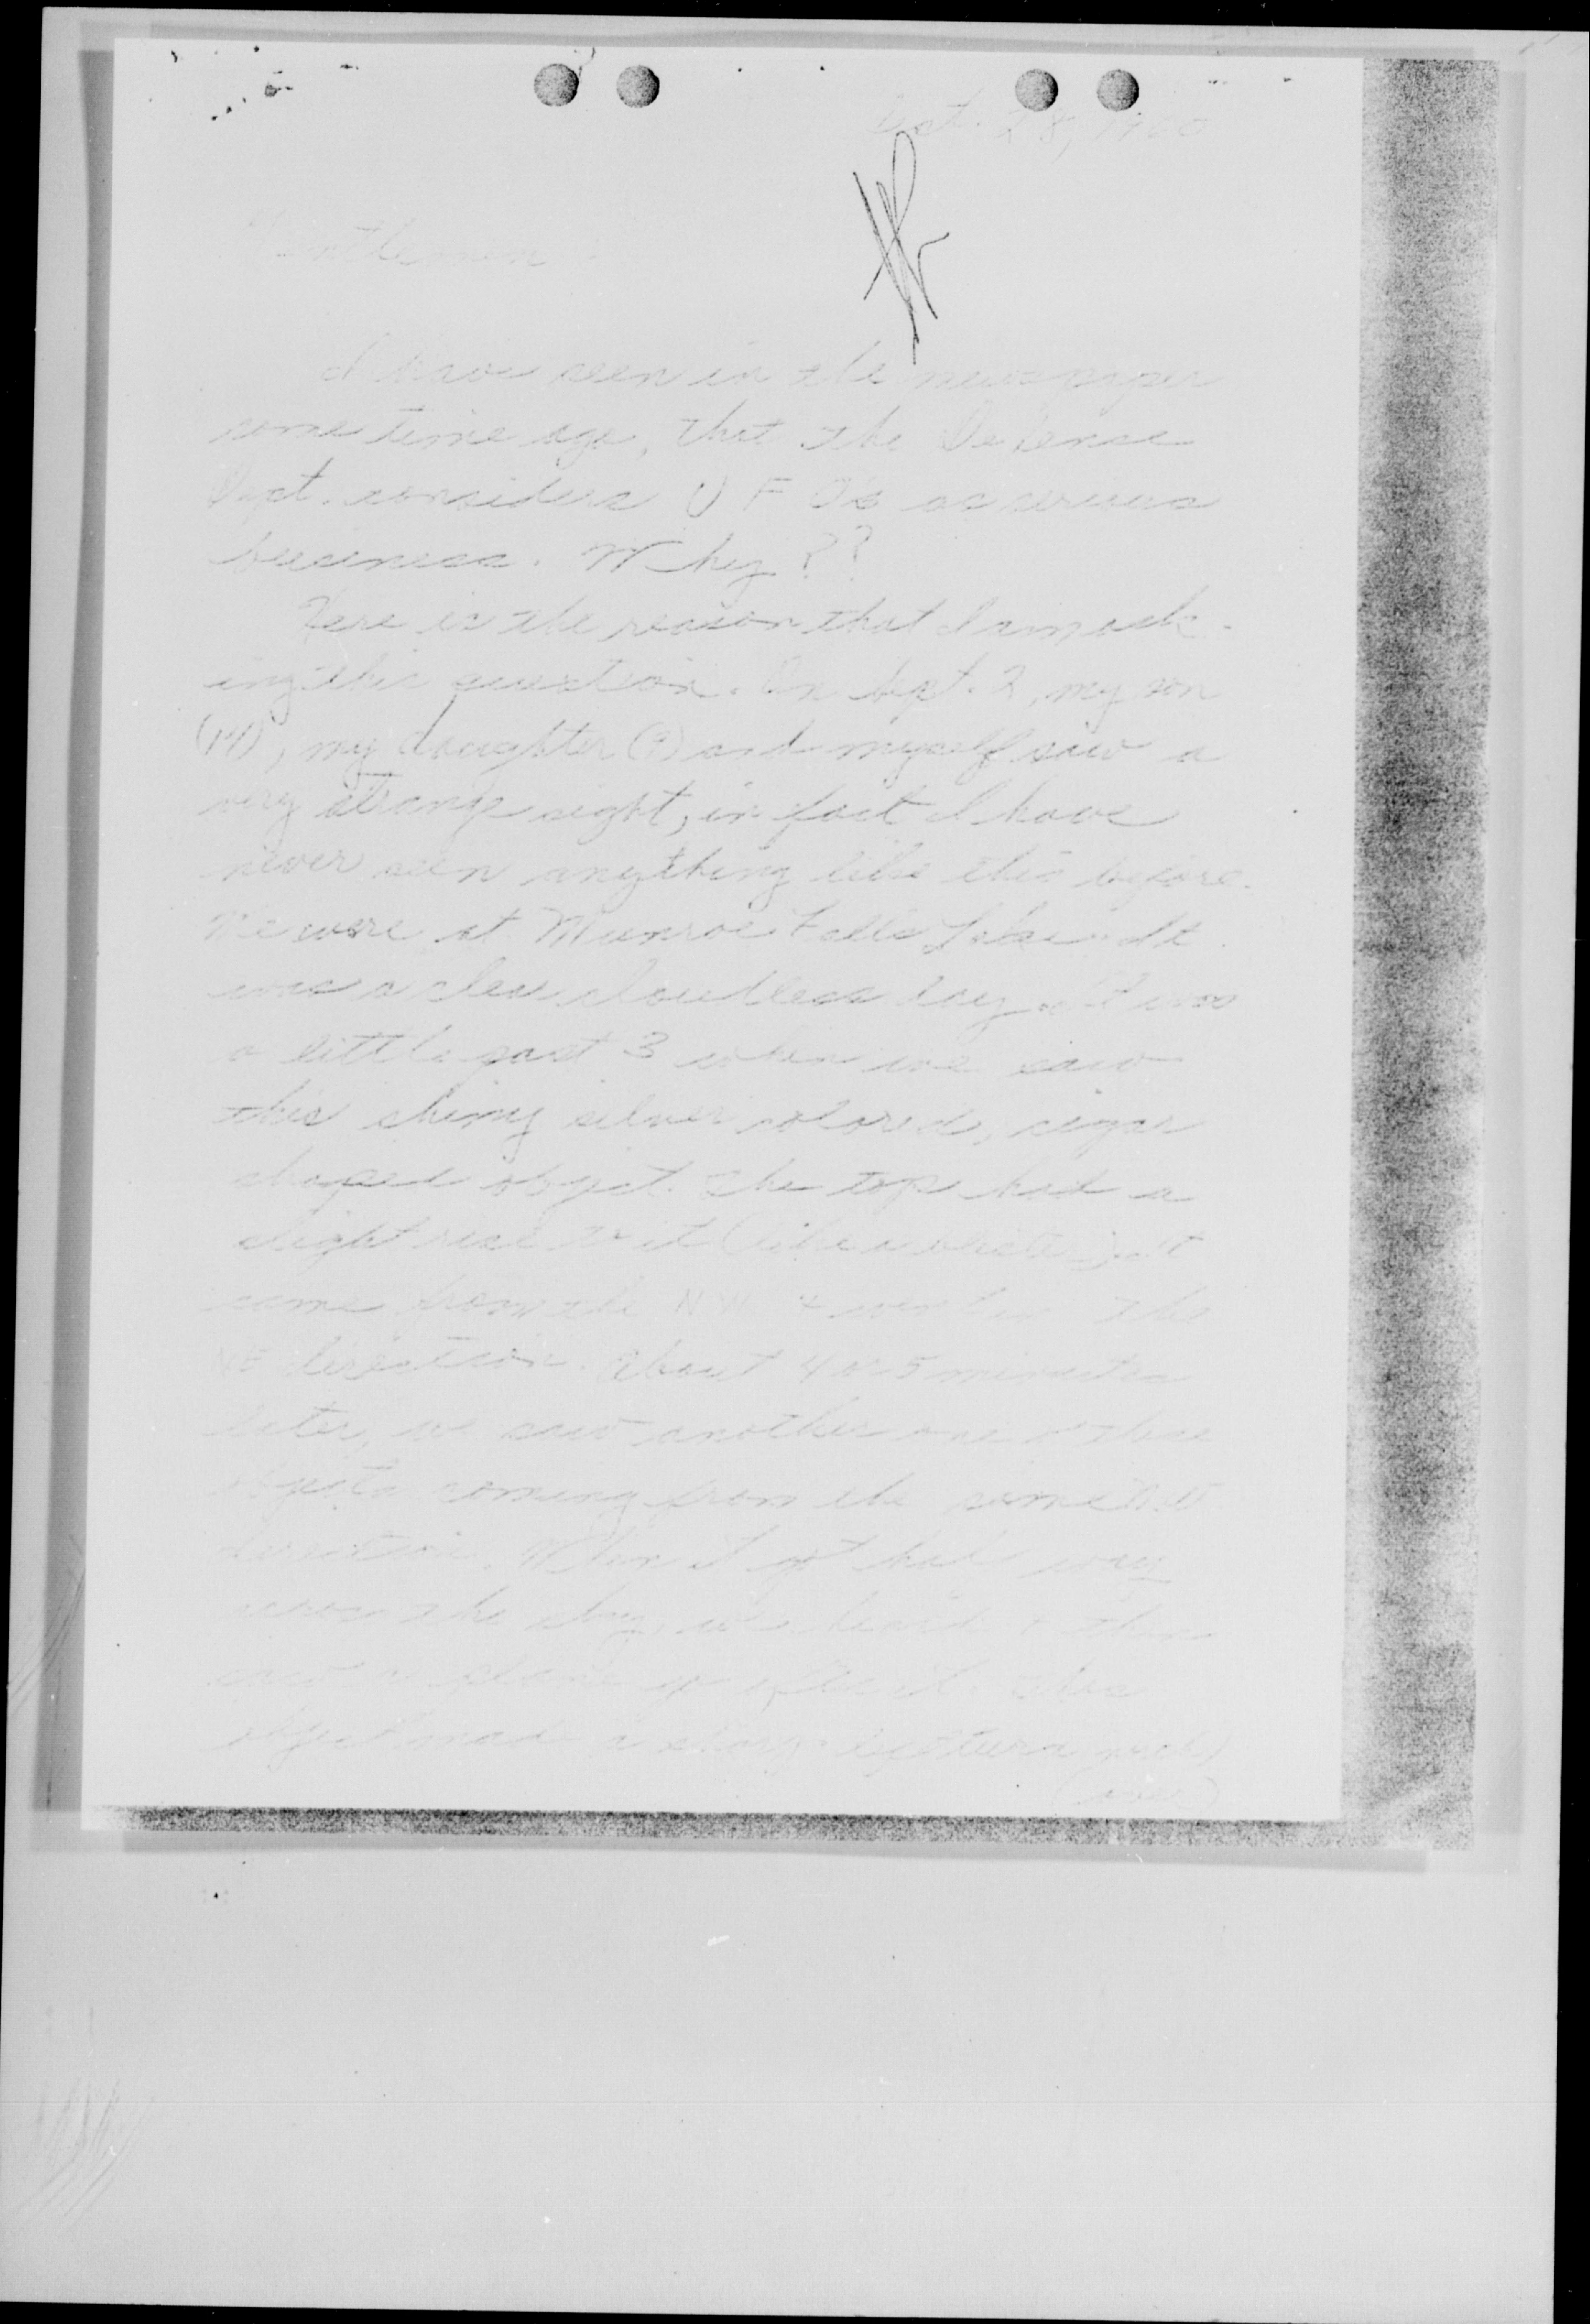 28, 1960
Gentlemen
I have seen in the newspaper
some time ago, that the Defense
Dept. considers U F O's as serious
business. Why??
Here is the reason that I am ask-
ing this question. On Sept. 2, my son
my daughter (9) and myself saw a
very strange sight, in fact I have
never seen anything like this before.
We were at Munroe Falls Lake. It
was a clear cloudless day. It was
a little past 3 when we saw
this shiny silver colored, cigar
shaped object. The top had a
slight rise to it (like a blister). It
came from the NW & went in the
NE direction. About 4 or 5 minutes
later, we saw another one of these
objects coming from the same
direction. When it got half way
across the sky, we heard & then
saw a plane go after it. The
object made a sharp left turn
(over)